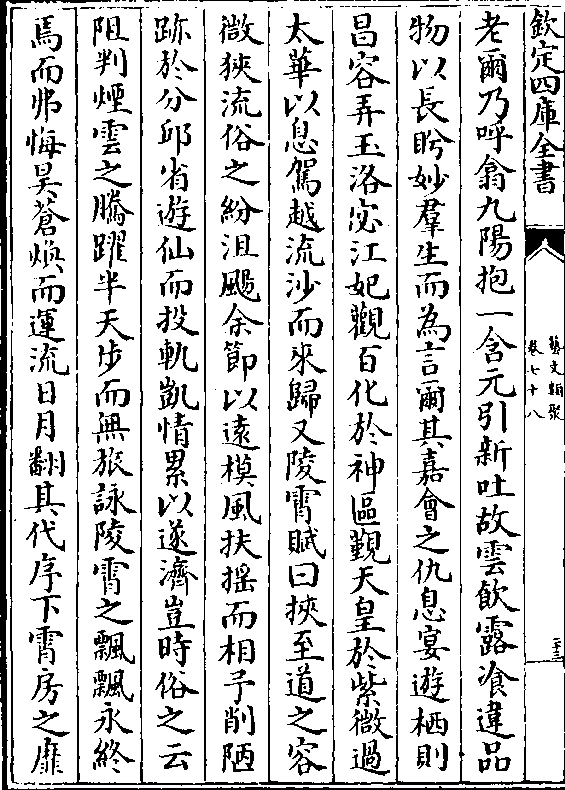 欽定四庫全書
藝文類聚
卷七十八
老爾乃呼翕九陽抱一含元引新吐故雲飲露飡違品
物以長盻妙羣生而為言爾其嘉會之仇息宴遊栖則
昌容弄玉洛宓江妃觀百化於神區覲天皇於紫微過
太華以息駕越流沙而來歸又陵霄賦曰挾至道之容
微狹流俗之紛沮颺余節以遠模風扶搖而相予削陋
跡於分邱省遊仙而投軌凱情累以遂濟豈時俗之云
阻判煙雲之騰躍半天步而無旅詠陵霄之飄飄永終
焉而弗悔昊蒼煥而運流日月翻其代序下霄房之靡